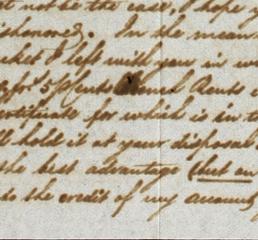 not be the case, I hope y
ishonored. In the mean
cket I left with you in w
frs 5 P Cents French Rents
ertificate for which is in t
ll hold it at your disposal
the best advantage (but on
to the credit of my account